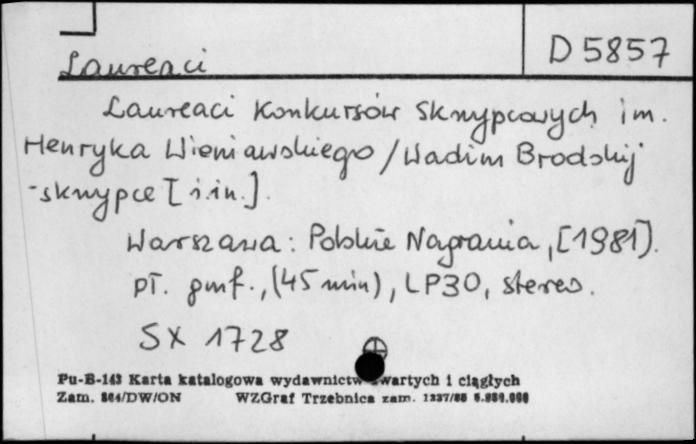 D 5857
Laureaci
Laureaci Konkursów Skrzypcowych im.
Henryka Wieniawskiego / Wadim Brodskij
- skrzypce [i. in.].
Warszawa: Polskie Nagrania, [1981].
pł. gmf., (45 min), LP30, stereo.
SX 1728
Pu-B-143 Karta katalogowa wydawnictw zwartych i ciągłych
Zam. 864/DW/ON WZGraf Trzebnica zam.